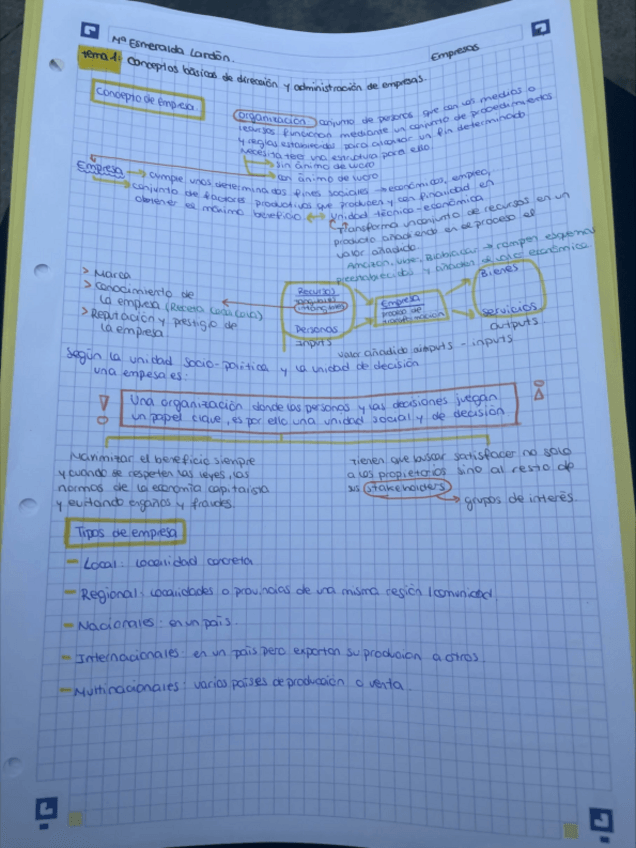 Mª Esmeralda Landón.
Empresas
tema 1: Conceptos básicos de dirección y administración de empresas.
Concepto de Empresa
organización conjunto de personas que con los medios o
recursos funcionan mediante un conjunto de procedimientos
y reglas establecidas para alcanzar un fin determinado
necesita tener una estructura para ello
sin ánimo de lucro
con ánimo de lucro
Empresa → cumple unos determinados fines sociales → económicos, empleo,
conjunto de factores productivos que producen y con finalidad en
obtener el máximo beneficio ↔ Unidad técnico-económica
Transforma un conjunto de recursos en un
producto añadiendo en el proceso el
valor añadido
Amazon, Uber, → rompen esquemas
preestablecidos y añaden valor económico.
> Marca
> conocimiento de
la empresa (Receta Coca Cola)
> Reputación y prestigio de
la empresa
Recursos
tangibles
intangibles
Personas
inputs
Empresa
proceso de
transformación
Bienes
servicios
outputs
valor añadido outputs - inputs
Según la unidad socio-política y la unidad de decisión
una empresa es:
Una organización donde las personas y las decisiones juegan
un papel clave, es por ello una unidad social y de decisión
Maximizar el beneficio siempre
y cuando se respeten las leyes, las
normas de la economía capitalista
y evitando engaños y fraudes.
Tienen que buscar satisfacer no solo
a los propietarios sino al resto de
sus stakeholders
→ grupos de interés.
Tipos de empresa
- Local: Localidad concreta
- Regional: Localidades o provincias de una misma región/comunidad.
- Nacionales: en un país.
- Internacionales: en un país pero exportan su producción a otros
- Multinacionales: varios países de producción o venta.